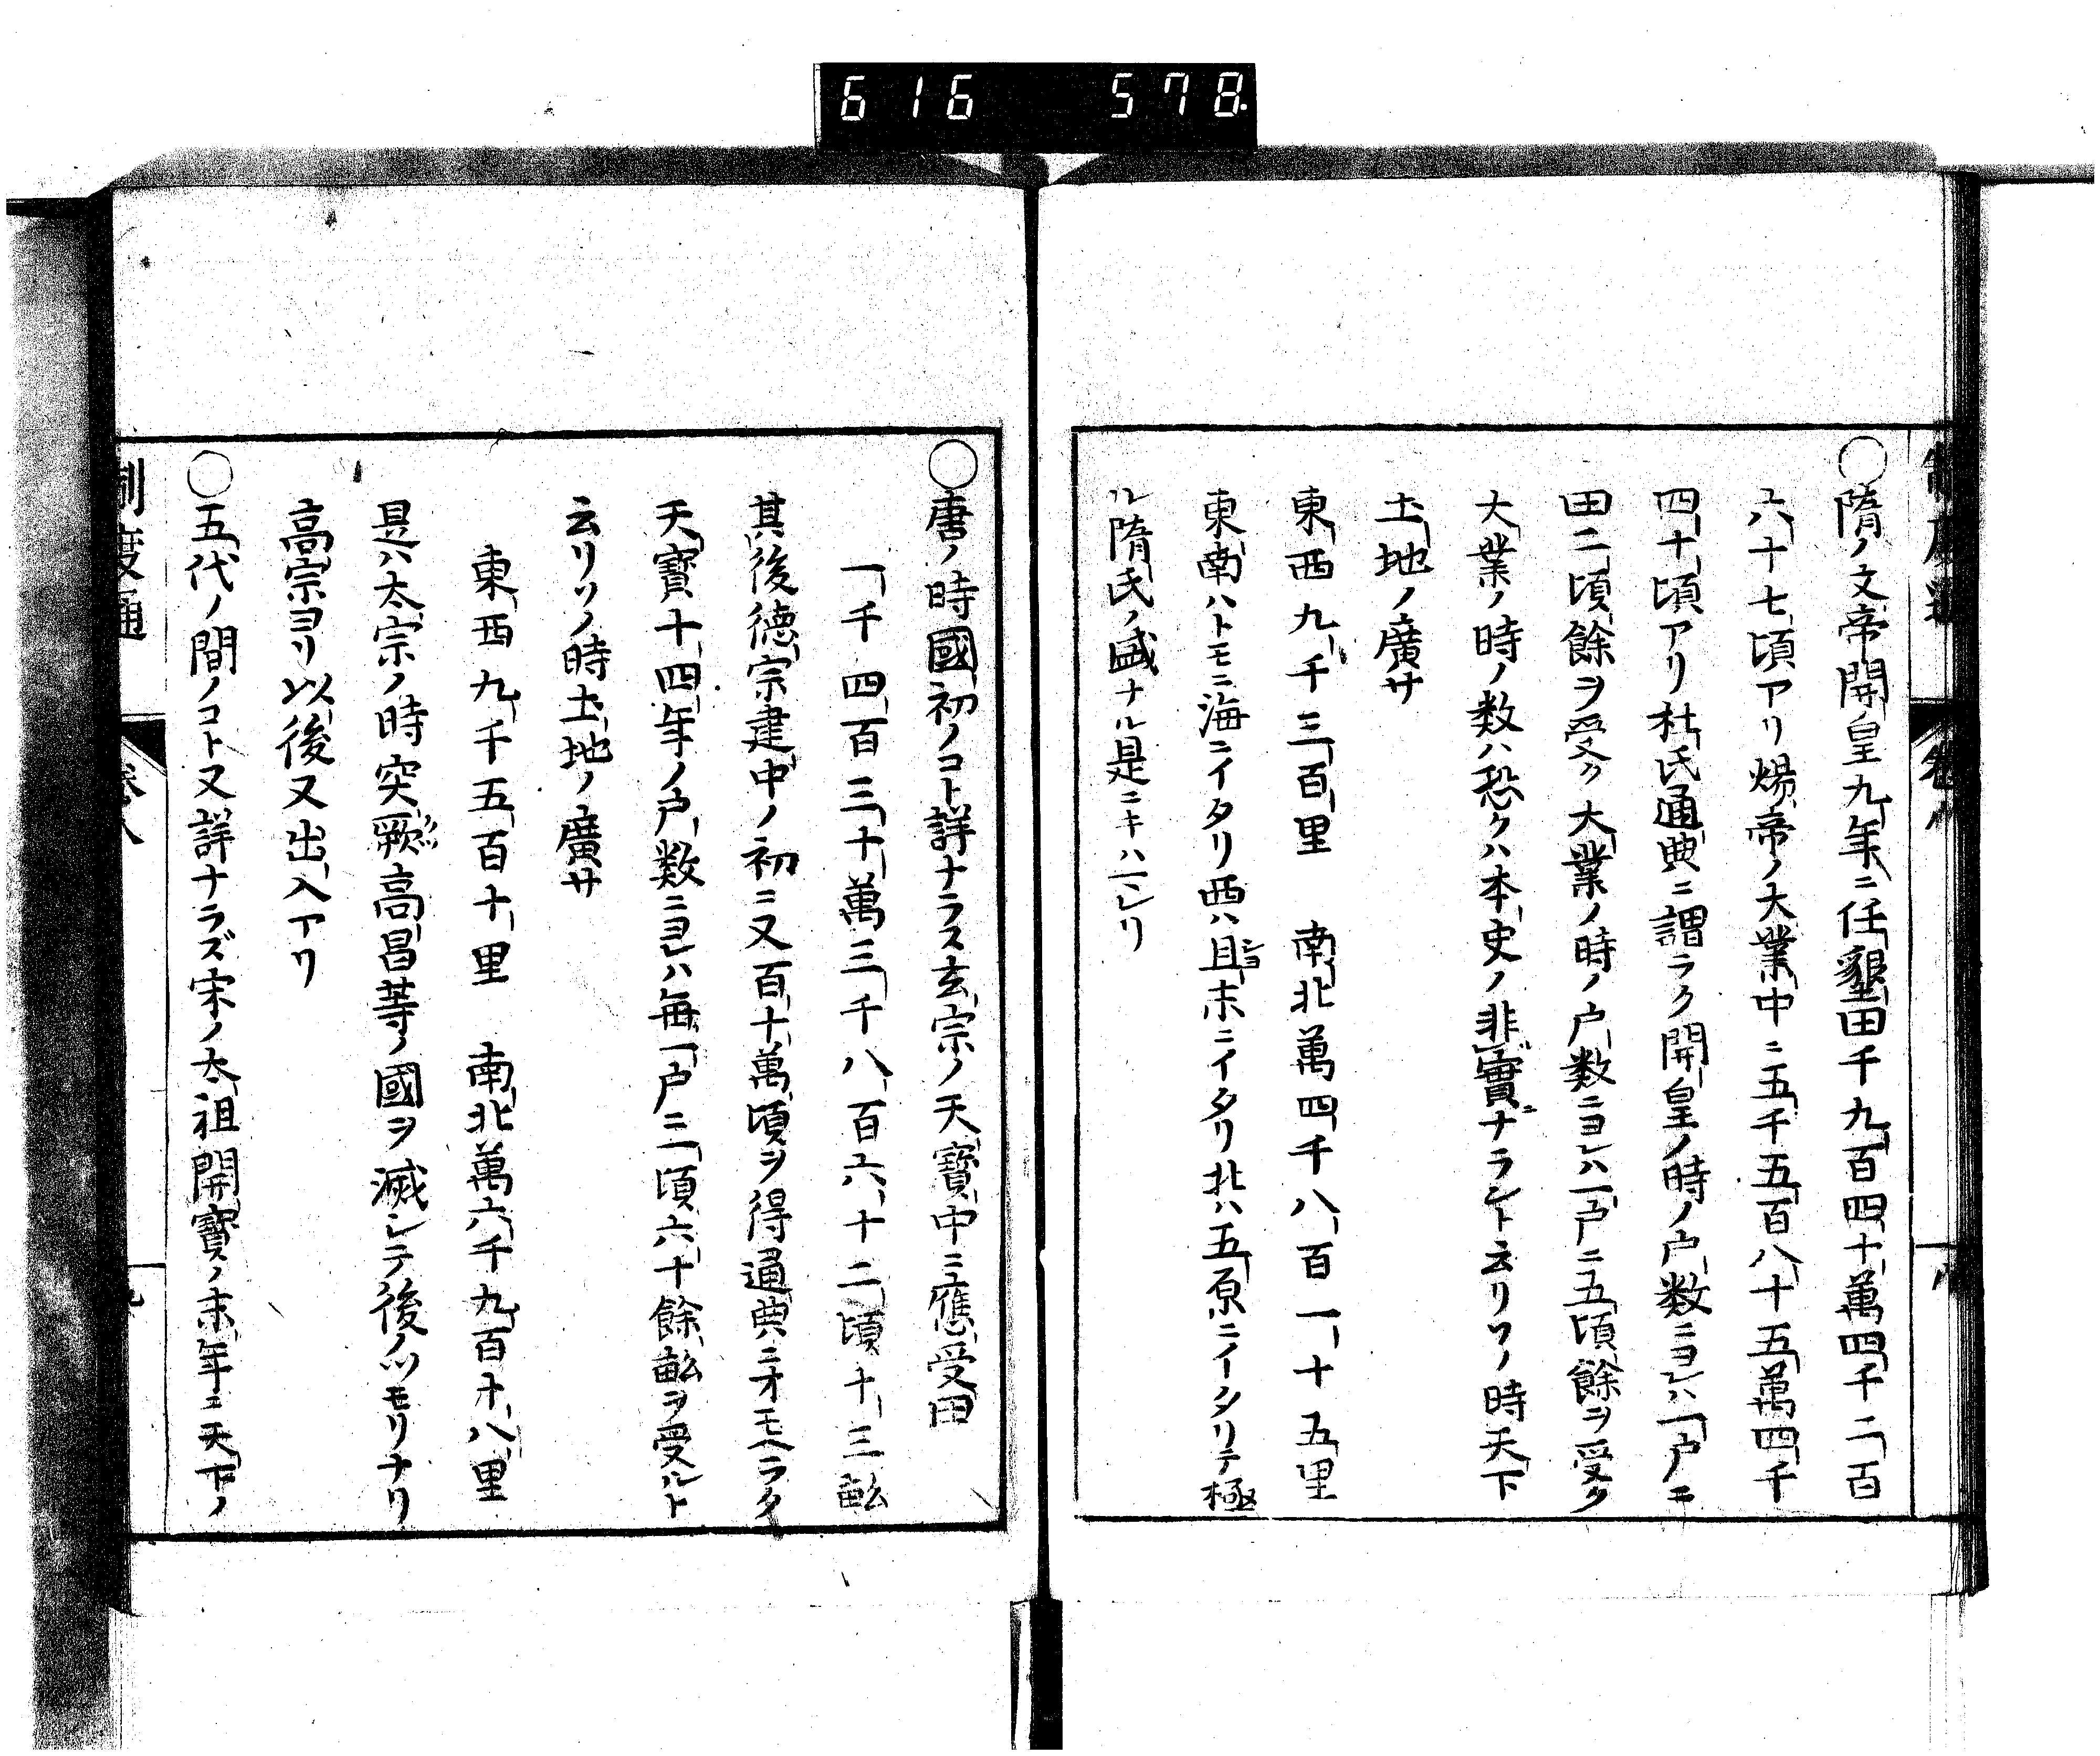 616 578
○隋ノ文帝開皇九年ニ任墾田千九百四十萬四千二百
六十七頃アリ煬帝ノ大業中ニ五千五百八十五萬四千
四十頃アリ杜氏通典ニ謂ラク開皇ノ時ノ戸数ニヨレハ一戸ニ
田二頃餘ヲ受ク大業ノ時ノ戸数ニヨレハ一戸ニ五頃餘ヲ受ク
大業ノ時ノ数ハ恐クハ本史ノ非實ナラント云リソノ時天下
土地ノ廣サ
東西九千三百里 南北萬四千八百一十五里
東南ハトモニ海ニイタリ西ハ且末ニイタリ北ハ五原ニイタリテ極
ル隋氏ノ盛ナル是ニキハレリ
○唐ノ時國初ノコト詳ナラス玄宗ノ天寶中ニ應受田
一千四百三十萬三千八百六十二頃十三畝
其後德宗建中ノ初ニ又百十萬頃ヲ得通典ニオモヘラク
天寶十四年ノ戸数ニヨレハ毎一戸ニ一頃六十餘畝ヲ受ルト
云リソノ時土地ノ廣サ
東西九千五百十里 南北萬六千九百十八里
是ハ太宗ノ時突厥高昌等ノ國ヲ滅シテ後ノツモリナリ
高宗ヨリ以後又出入アリ
○五代ノ間ノコト又詳ナラズ宋ノ太祖開寶ノ末年ニ天下ノ
制度通 卷八